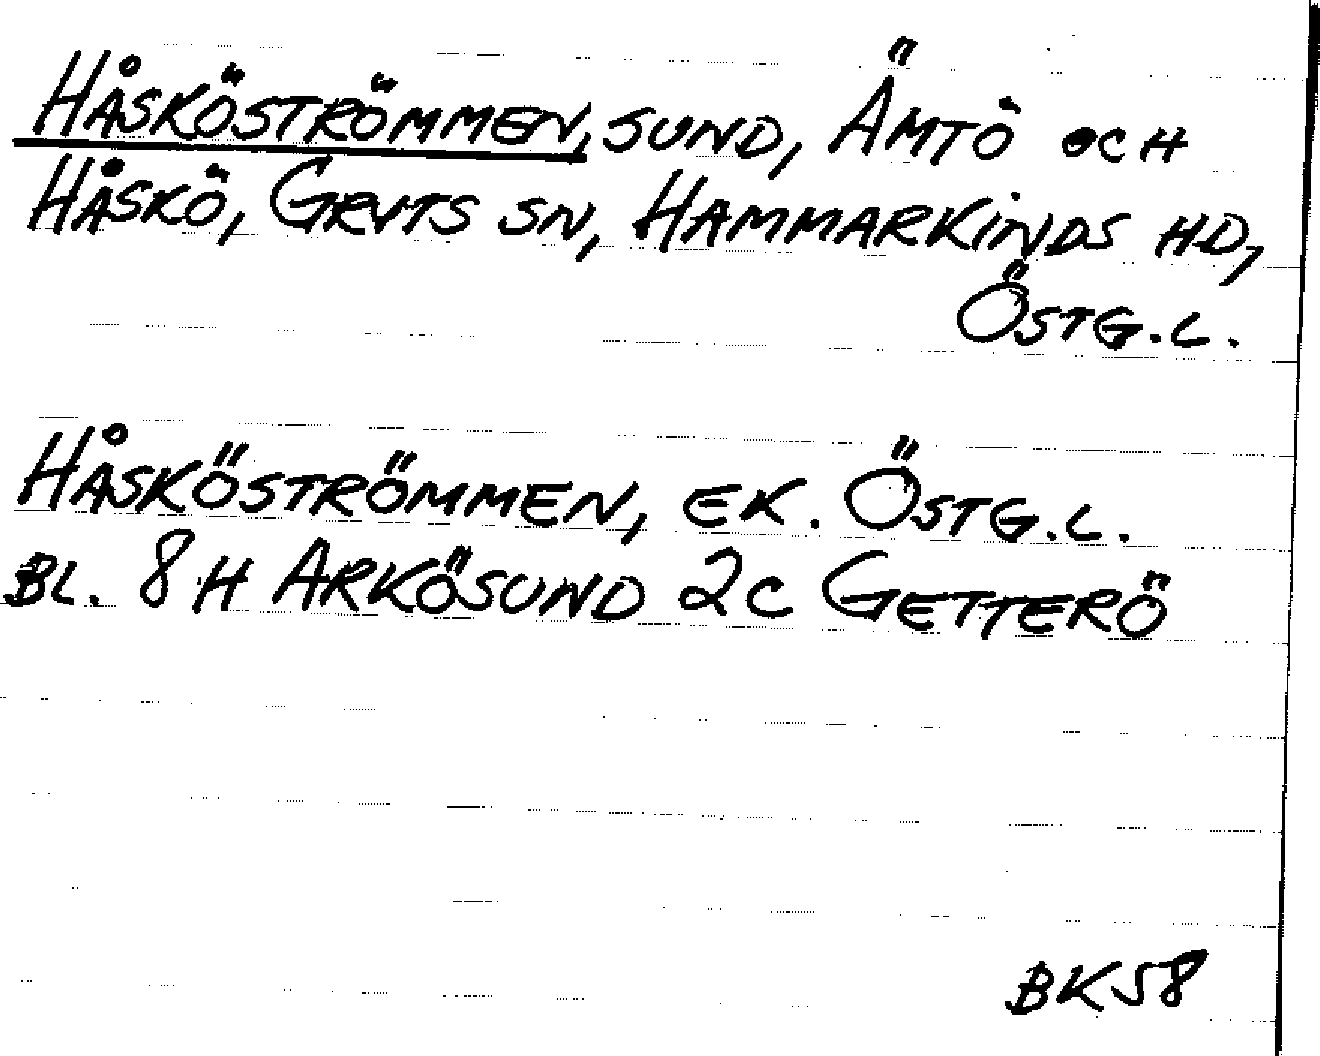 HÅSKÖSTRÖMMEN, SUND, ÄMTÖ OCH
HÅSKÖ, GRYTS SN, HAMMARKINDS HD,
ÖSTG.L.
HÅSKÖSTRÖMMEN, EK. ÖSTG.L.
BL. 8H ARKÖSUND 2C GETTERÖ
BK58